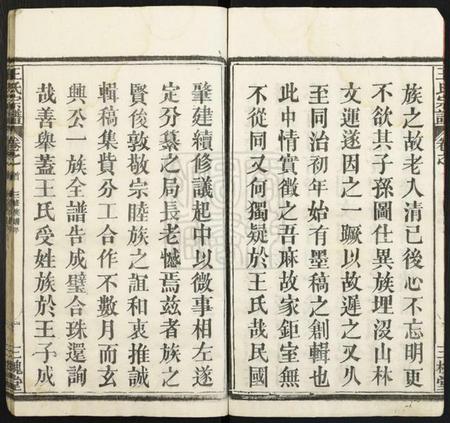 族之故老人清已後心不忘明更
不欲其子孫圖仕異族埋沒山林
文運遂因之一蹶以故遲之又久
至同治初年始有墨稿之創輯也
此中情實徵之吾麻故家鉅室無
不從同又何獨疑於王氏哉民國
肇建續修議起中以微事相左遂
定分纂之局長老憾焉兹者族之
賢後敦敬宗睦族之誼和衷推誠
輯稿集貲分工合作不數月而玄
興公一族全譜告成璧合珠還詢
哉善舉蓋王氏受姓族於王子成
王氏宗譜
卷之首
三槐堂
王氏宗譜
卷之
三槐堂